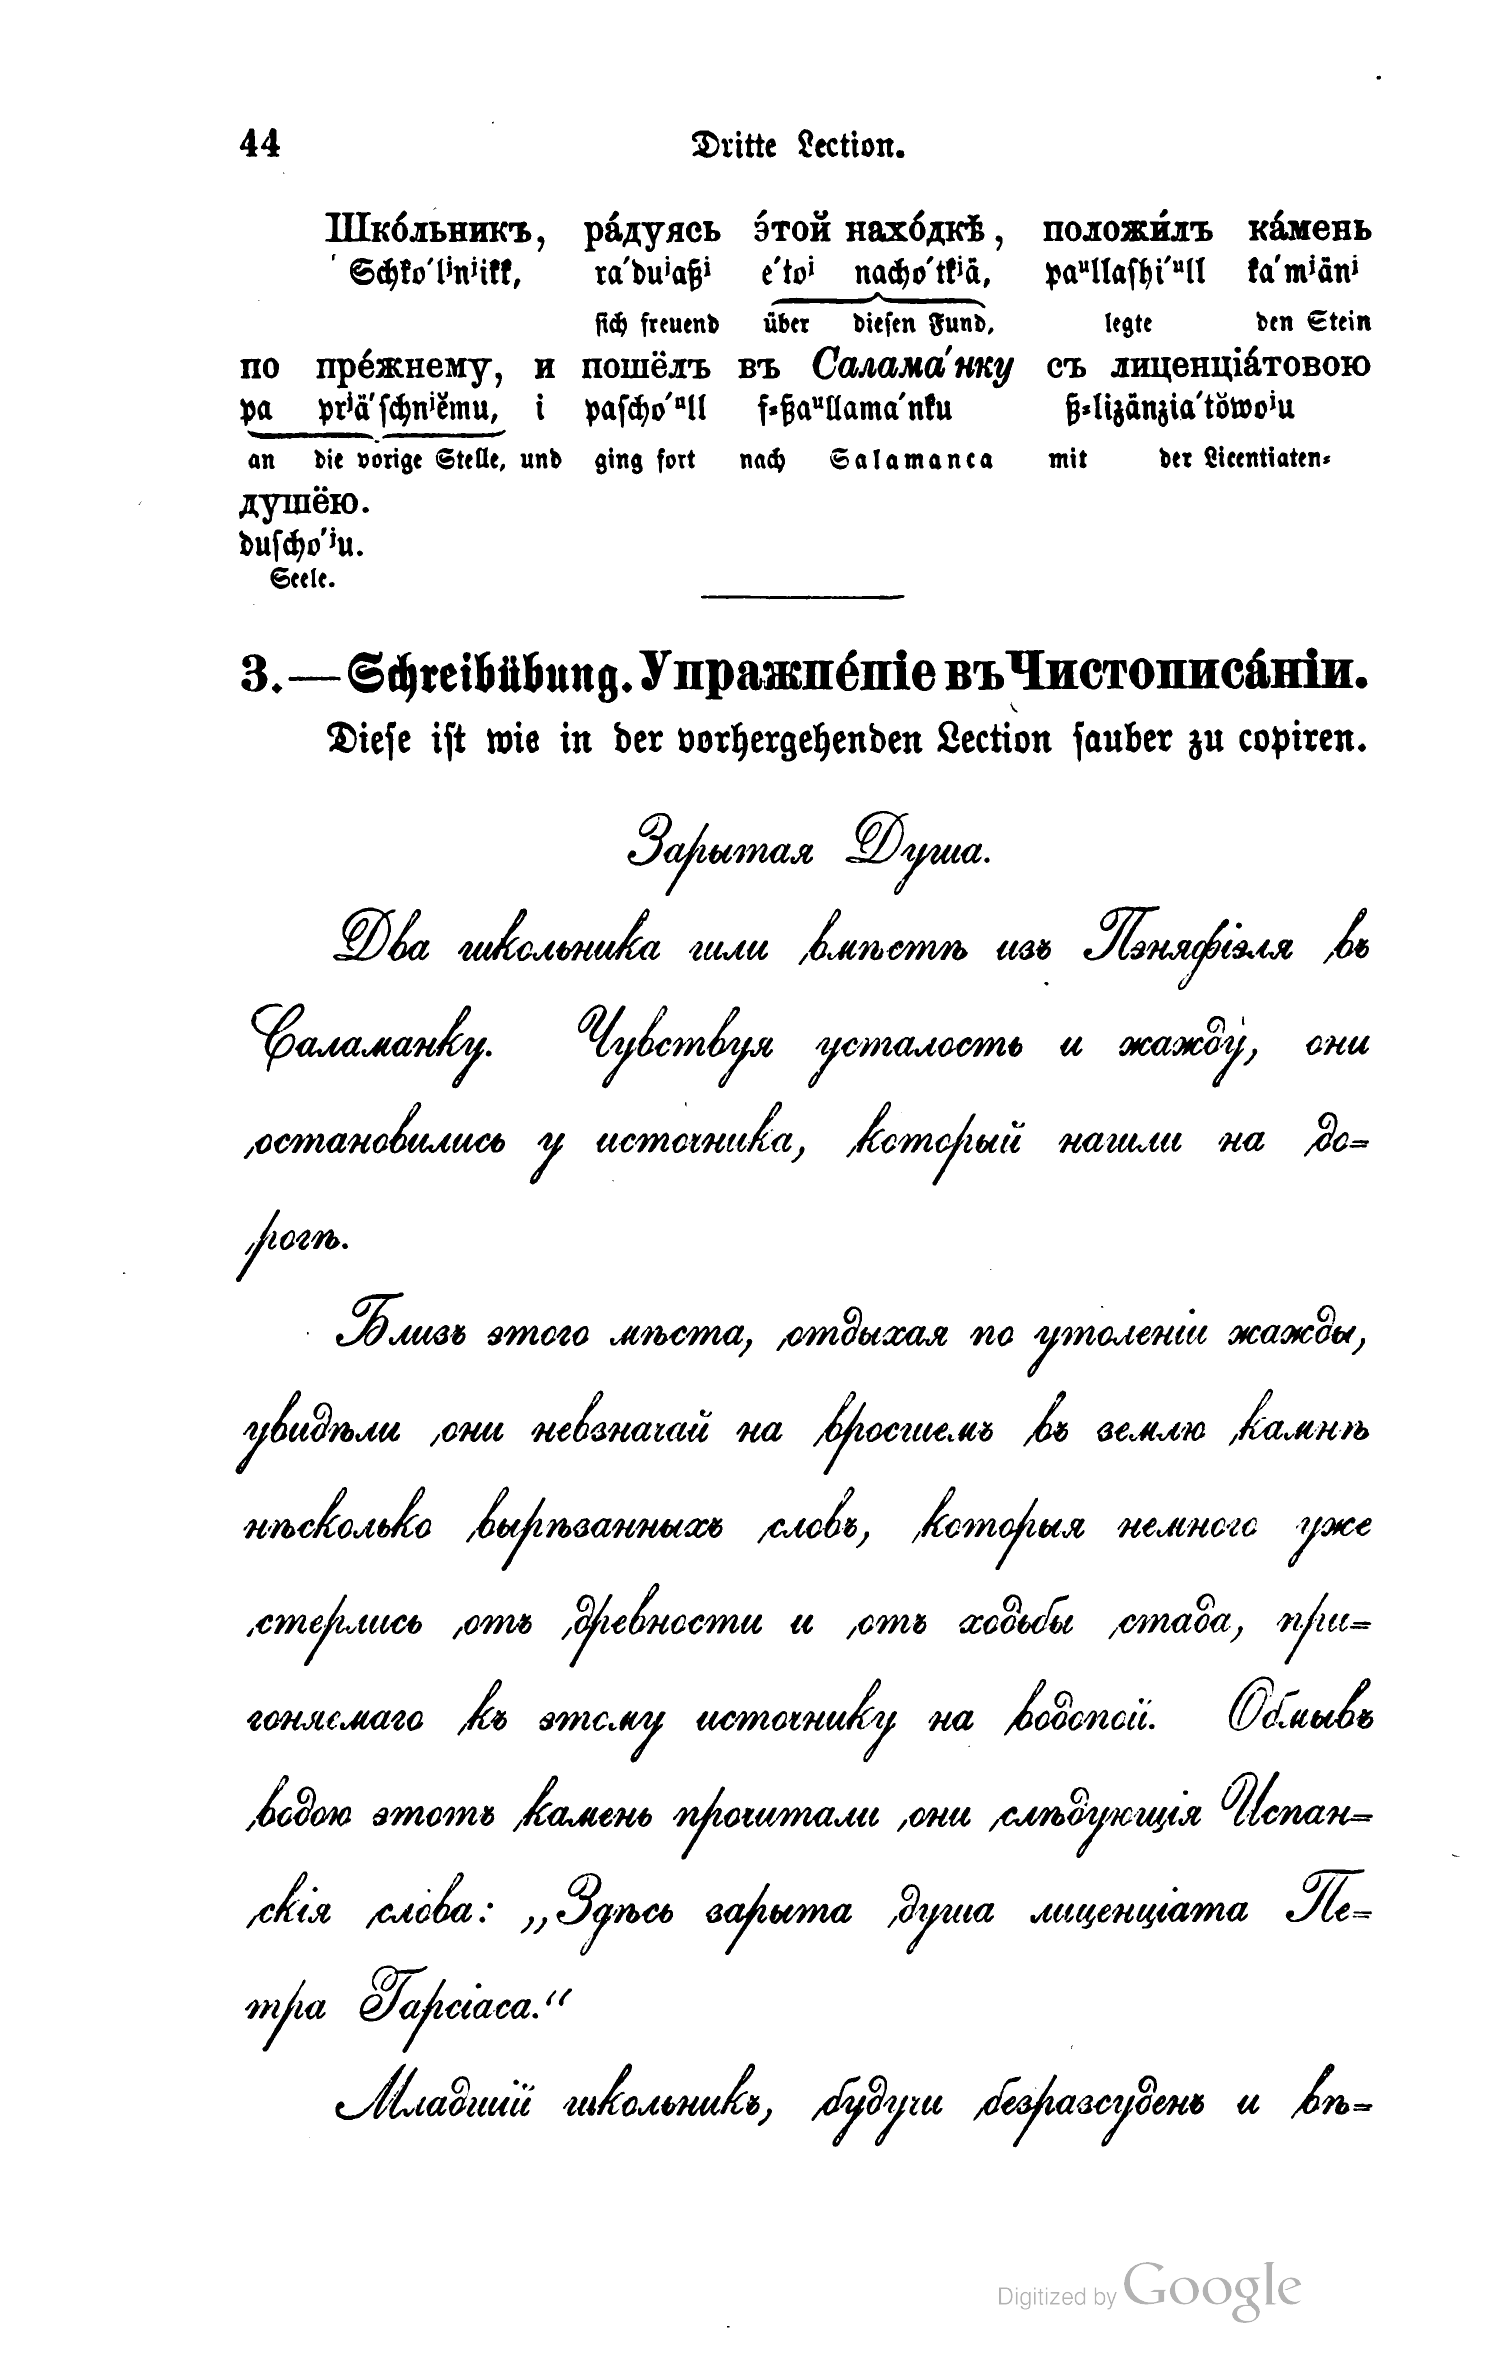 44 Dritte Lection.
Шко́льникъ, ра́дуясь э́той нахо́дкѣ, положи́лъ ка́мень
Schko´lʲnʲikk, ra´duʲaßʲ e´toʲ nacho´tkʲä, paᵘllaſhi´ᵘll ka´mʲänʲ
ſich freuend über dieſen Fund, legte den Stein
по пре́жнему, и пошёлъ въ Салама́нку съ лиценціа́товою
pa prʲä´ſchnʲĕmu, i paſcho´ᵘll f⸗ßaᵘllama´nku ß⸗lizänzia´tŏwoʲu
an die vorige Stelle, und ging fort nach Salamanca mit der Licentiaten⸗
душёю.
duſcho´ʲu.
Seele.
3.—Schreibübung. Упражпе́піе въ Чистописа́ніи.
Dieſe iſt wie in der vorhergehenden Lection ſauber zu copiren.
Зарытая Душа.
Два школьника шли вмѣстѣ изъ Пэняфіэля въ
Саламанку. Чувствуя усталость и жажду, они
остановились у источника, который нашли на до=
рогѣ.
Близъ этого мѣста, отдыхая по утоленіи жажды,
увидѣли они невзначай на вросшемъ въ землю камнѣ
нѣсколько вырѣзанныхъ словъ, которыя немного уже
стерлись отъ древности и отъ ходьбы стада, при=
гоняемаго къ этому источнику на водопой. Обмывъ
водою этотъ камень прочитали они слѣдующія Испан=
скія слова: „Здѣсь зарыта душа лиценціата Пе=
тра Гарсіаса.“
Младшій школьникъ, будучи безразсуденъ и вѣ=
Digitized by Google